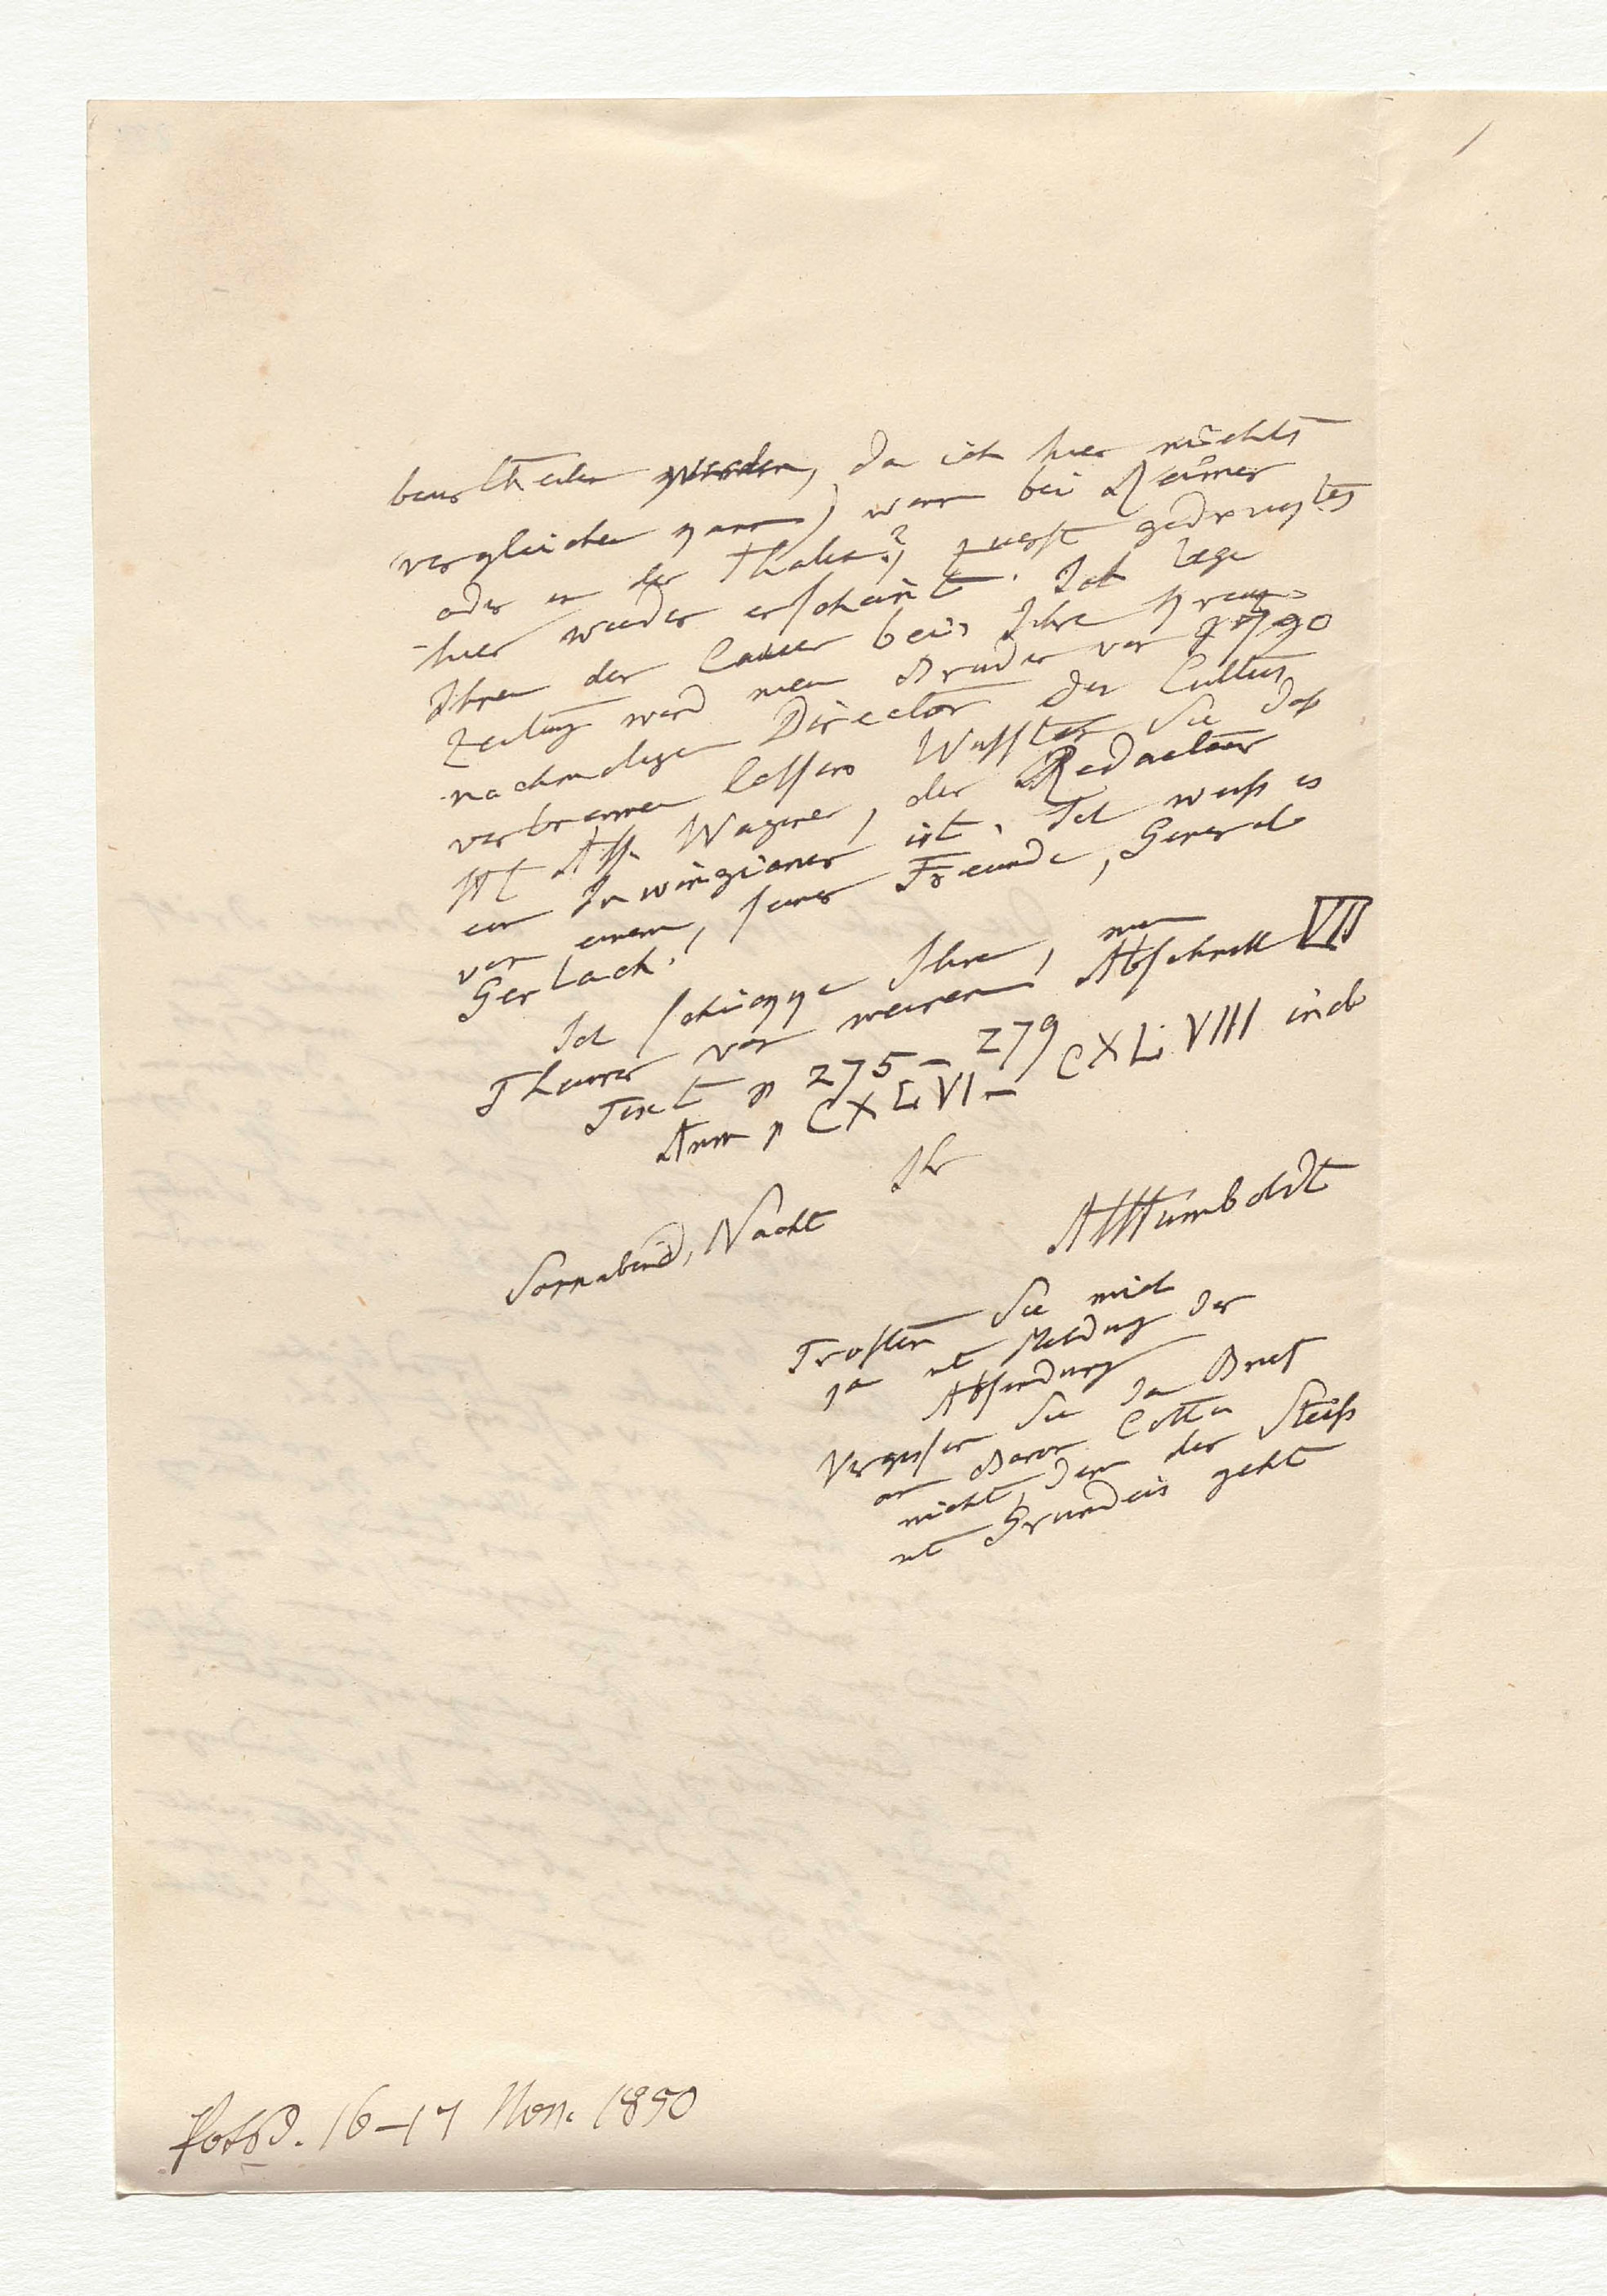 beurtheilen werden, da ich hier nichts
vergleichen kann) wenn bei Reimer
oder in der Thalia?) zuerst gedrucktes
hier wieder erscheint. Ich lege
Ihnen der bei, Ihre Kreuz-
zeitung wird mein Bruder vor 1790
nachmaligen Director des Cultus
verbrennen lassen Wussten Sie daß
Ass. Wagner, der Redacteur
ein Irwingianer ist. Ich weiß es
von einem, seiner Freunde, General
Gerlach.
Ich schicke Ihnen, mein
Theurer von meinem Abschnitt VII
Text p 275–279
Anm p CXLVI– CXLVIII incl
Ihr
AlHumboldt
Sonnabend, Nacht
Trösten Sie mich
ja mit Meldung der
Absendung
Vergessen Sie den Brief
an Baron Cotta
nicht, denn der Steiß
mit Grundeis geht
Potsd. 16–17 Nov. 1850